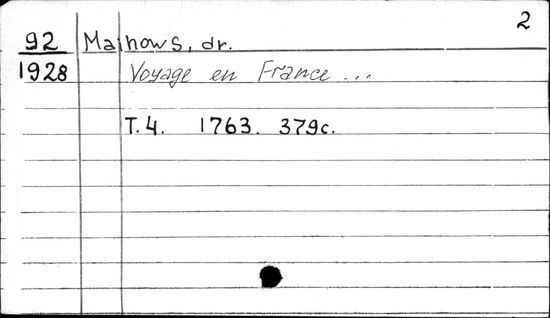 2
92 Mathows, dr.
1928 Voyage en France ...
T. 4. 1763. 379c.